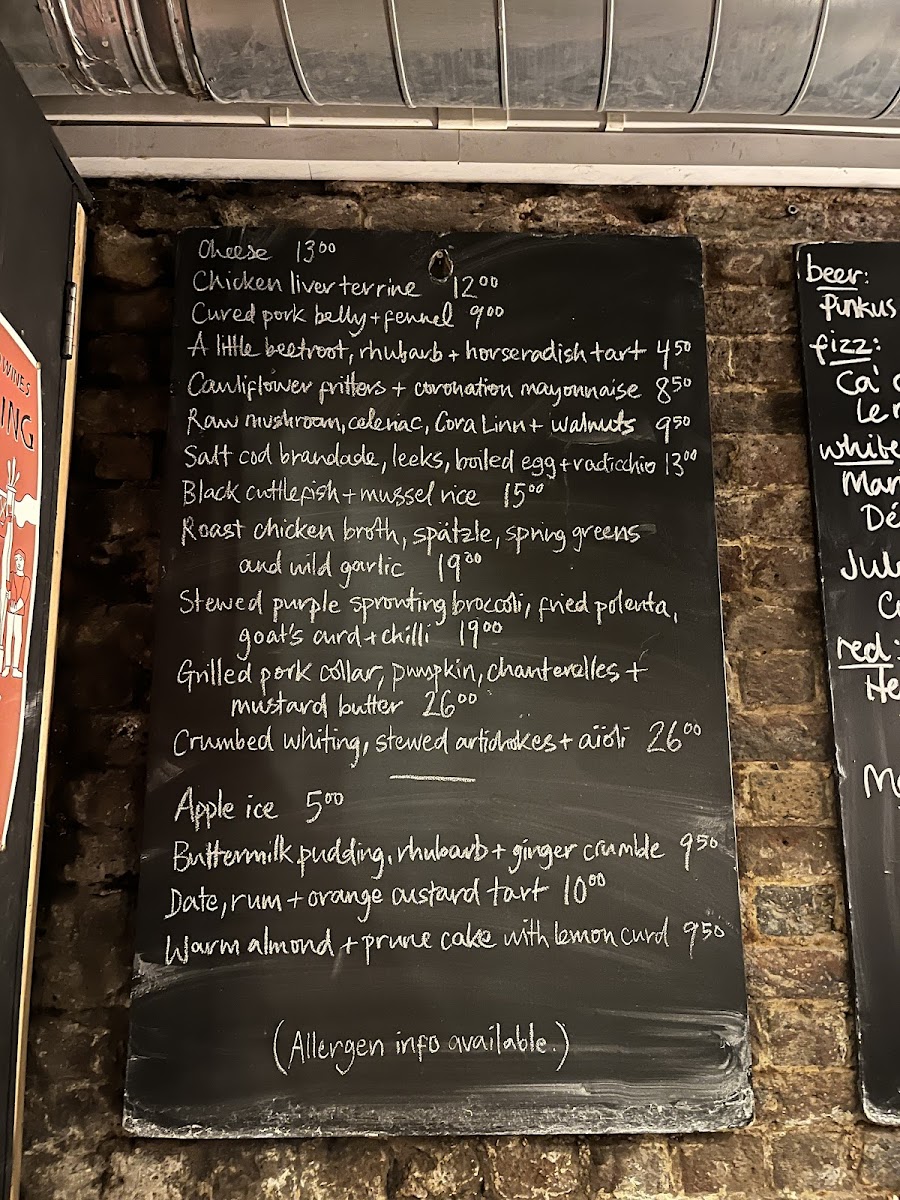 Cheese 13⁰⁰
Chicken liver terrine 12⁰⁰
Cured pork belly + fennel 9⁰⁰
A little beetroot, rhubarb + horseradish tart 4⁵⁰
Cauliflower fritters + coronation mayonnaise 8⁵⁰
Raw mushroom, celeriac, Cora Linn + walnuts 9⁵⁰
Salt cod brandade, leeks, boiled egg + radicchio 13⁰⁰
Black cuttlefish + mussel rice 15⁰⁰
Roast chicken broth, spätzle, spring greens
and wild garlic 19⁰⁰
Stewed purple sprouting broccoli, fried polenta,
goat's curd + chilli 19⁰⁰
Grilled pork collar, pumpkin, chanterelles +
mustard butter 26⁰⁰
Crumbed whiting, stewed artichokes + aïoli 26⁰⁰
Apple ice 5⁰⁰
Buttermilk pudding, rhubarb + ginger crumble 9⁵⁰
Date, rum + orange custard tart 10⁰⁰
Warm almond + prune cake with lemon curd 9⁵⁰
(Allergen info available.)
beer:
Pinkus
fizz:
Ca'
white
Mar
Dé
Jul
red:
He
WINES
ING